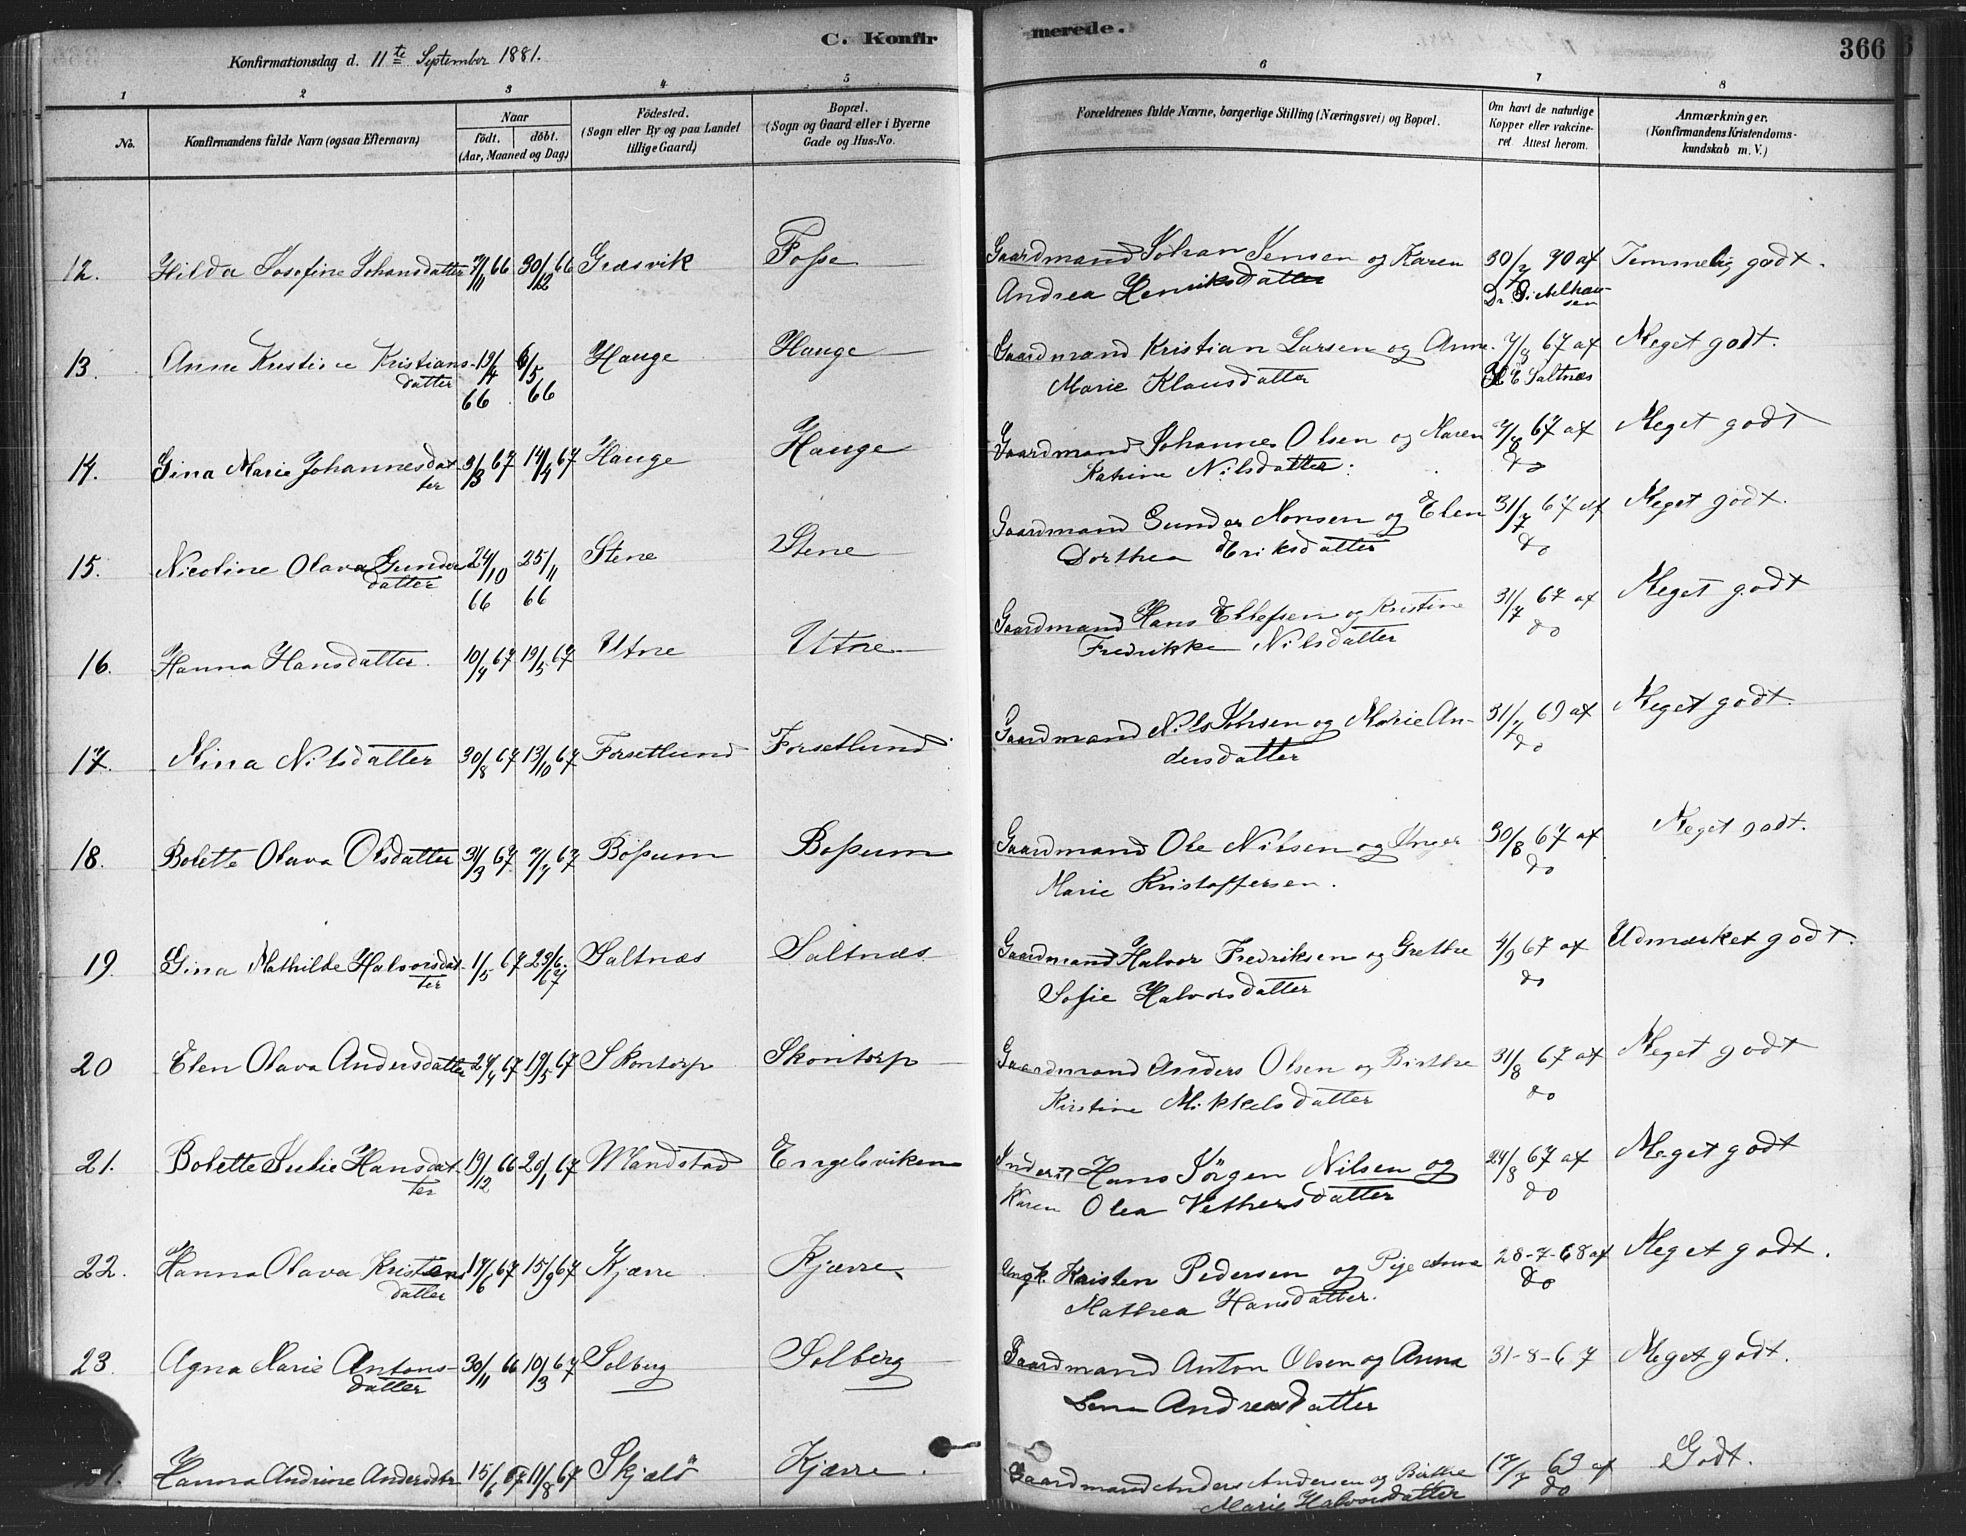 C. Konfirmerede.
366
Konfirmationsdag d. 11te September 1881.
1 2 3 4 5 6 7 8
No.
Konfirmandens fulde Navn (ogsaa Efternavn)
Naar
født. døbt.
(Aar, Maaned og Dag)
Fødested.
(Sogn eller By og paa Landet
tillige Gaard)
Bopæl.
(Sogn og Gaard eller i Byerne
Gade og Hus-No.
Forældrenes fulde Navne, borgerlige Stilling (Næringsvei) og Bopæl.
Om havt de naturlige
Kopper eller vakcine-
ret. Attest herom.
Anmærkninger.
(Konfirmandens Kristendoms-
kundskab m. V.)
12. Hilda Josefine Johansdatter 7/11 66 30/12 66 Græsvik Fosse Gaardmand Johan Jensen og Karen 30/7 90 af Temmelig godt.
Andrea Henriksdatter
13. Anne Kristine Kristians- 19/4 6/5 Hauge Hauge Gaardmand Kristian Larsen og Anne 7/8 67 af Meget godt.
datter 66 66 Marie Klausdatter Saltnæs
14. Gina Marie Johannesdat 3/3 67 14/4 67 Hauge Hauge Gaardmand Johannes Olsen og Karen 7/8 67 af Meget godt
ter Katrine Nilsdatter. do
15. Nicoline Olava Gunder 24/10 25/11 Stene Stene Gaardmand Gunder Monsen og Elen 31/7 67 af Meget godt.
datter 66 66 Dorthea Eriksdatter do
16. Hanna Hansdatter. 10/4 67 19/5 67 Utne Utne Gaardmand Hans Ellefsen og Kristine 31/7 67 af Meget godt
Fredrikke Nilsdatter do
17. Mina Nilsdatter 30/8 67 13/10 67 Forsetlund Forsetlund Gaardmand Nils Johnsen og Marie An- 31/7 69 af Meget godt.
dersdatter do
18. Bolette Olava Olsdatter 31/3 67 7/7 67 Bossum Bossum Gaardmand Ole Nilsen og Inger 30/8 67 af Meget godt.
Marie Kristoffersen. do
19. Gina Mathilde Halvorsdat- 1/5 67 23/6 67 Saltnæs Saltnæs Gaardmand Halvor Fredriksen og Grethe 4/9 67 af Udmærket godt.
ter Sofie Halvorsdatter do
20 Elen Olava Andersdatter 24/4 67 19/5 67 Skontorp Skontorp Gaardmand Anders Olsen og Birthe 31/8 67 af Meget godt
Kirstine Mikkelsdatter do
21. Bolette Julie Hansdat 19/12 66 20/1 67 Mandstad Engelsviken Inderst Hans Jørgen Nilsen og 24/8 67 af Meget godt
ter Karen Olea Vethersdatter do
22. Hanna Olava Kristens 17/6 67 15/9 67 Kjærre Kjærre Ungk. Kristen Pedersen og Pige Anne 28-7-68 af Meget godt.
datter Mathea Hansdatter. do
23. Agna Marie Antons- 30/11 66 10/3 67 Solberg Solberg Gaardmand Anton Olsen og Anna 31-8-67 Meget godt.
datter Lena Andreasdatter
Hanna Andrine Andersdtr 15/6 67 11/8 67 Skjælø Kjærre. Gaardmand Anders Andersen og Birthe 17/7 69 af Godt.
Marie Halvorsdatter do